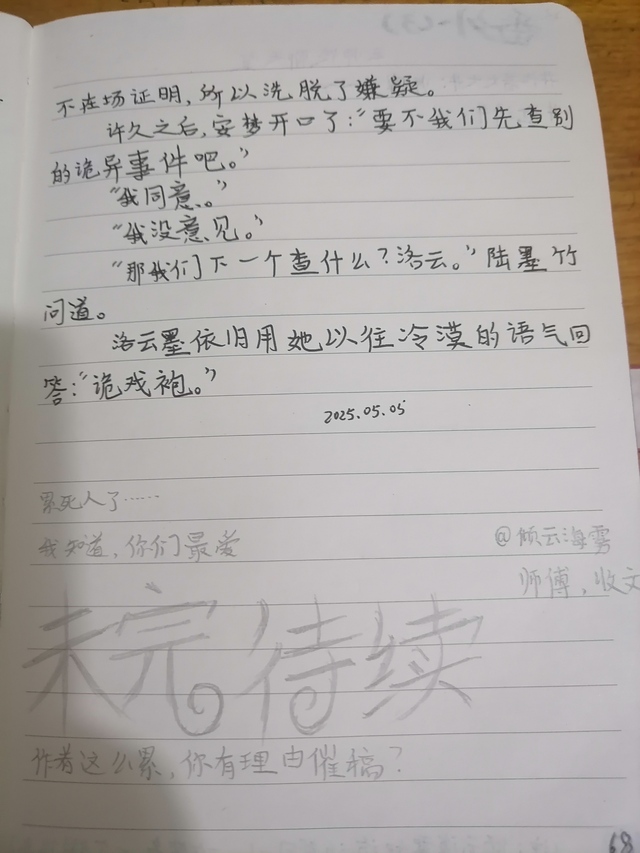 不在场证明，所以洗脱了嫌疑。
许久之后，安梦开口了：“要不我们先查别
的诡异事件吧。”
“我同意。”
“我没意见。”
“那我们下一个查什么？洛云。”陆墨竹
问道。
洛云墨依旧用她以往冷漠的语气回
答：“诡戏袍。”
2025.05.05
累死人了……
我知道，你们最爱
@倾云海雾
师傅，收文
未完待续
作者这么累，你有理由催稿？
68